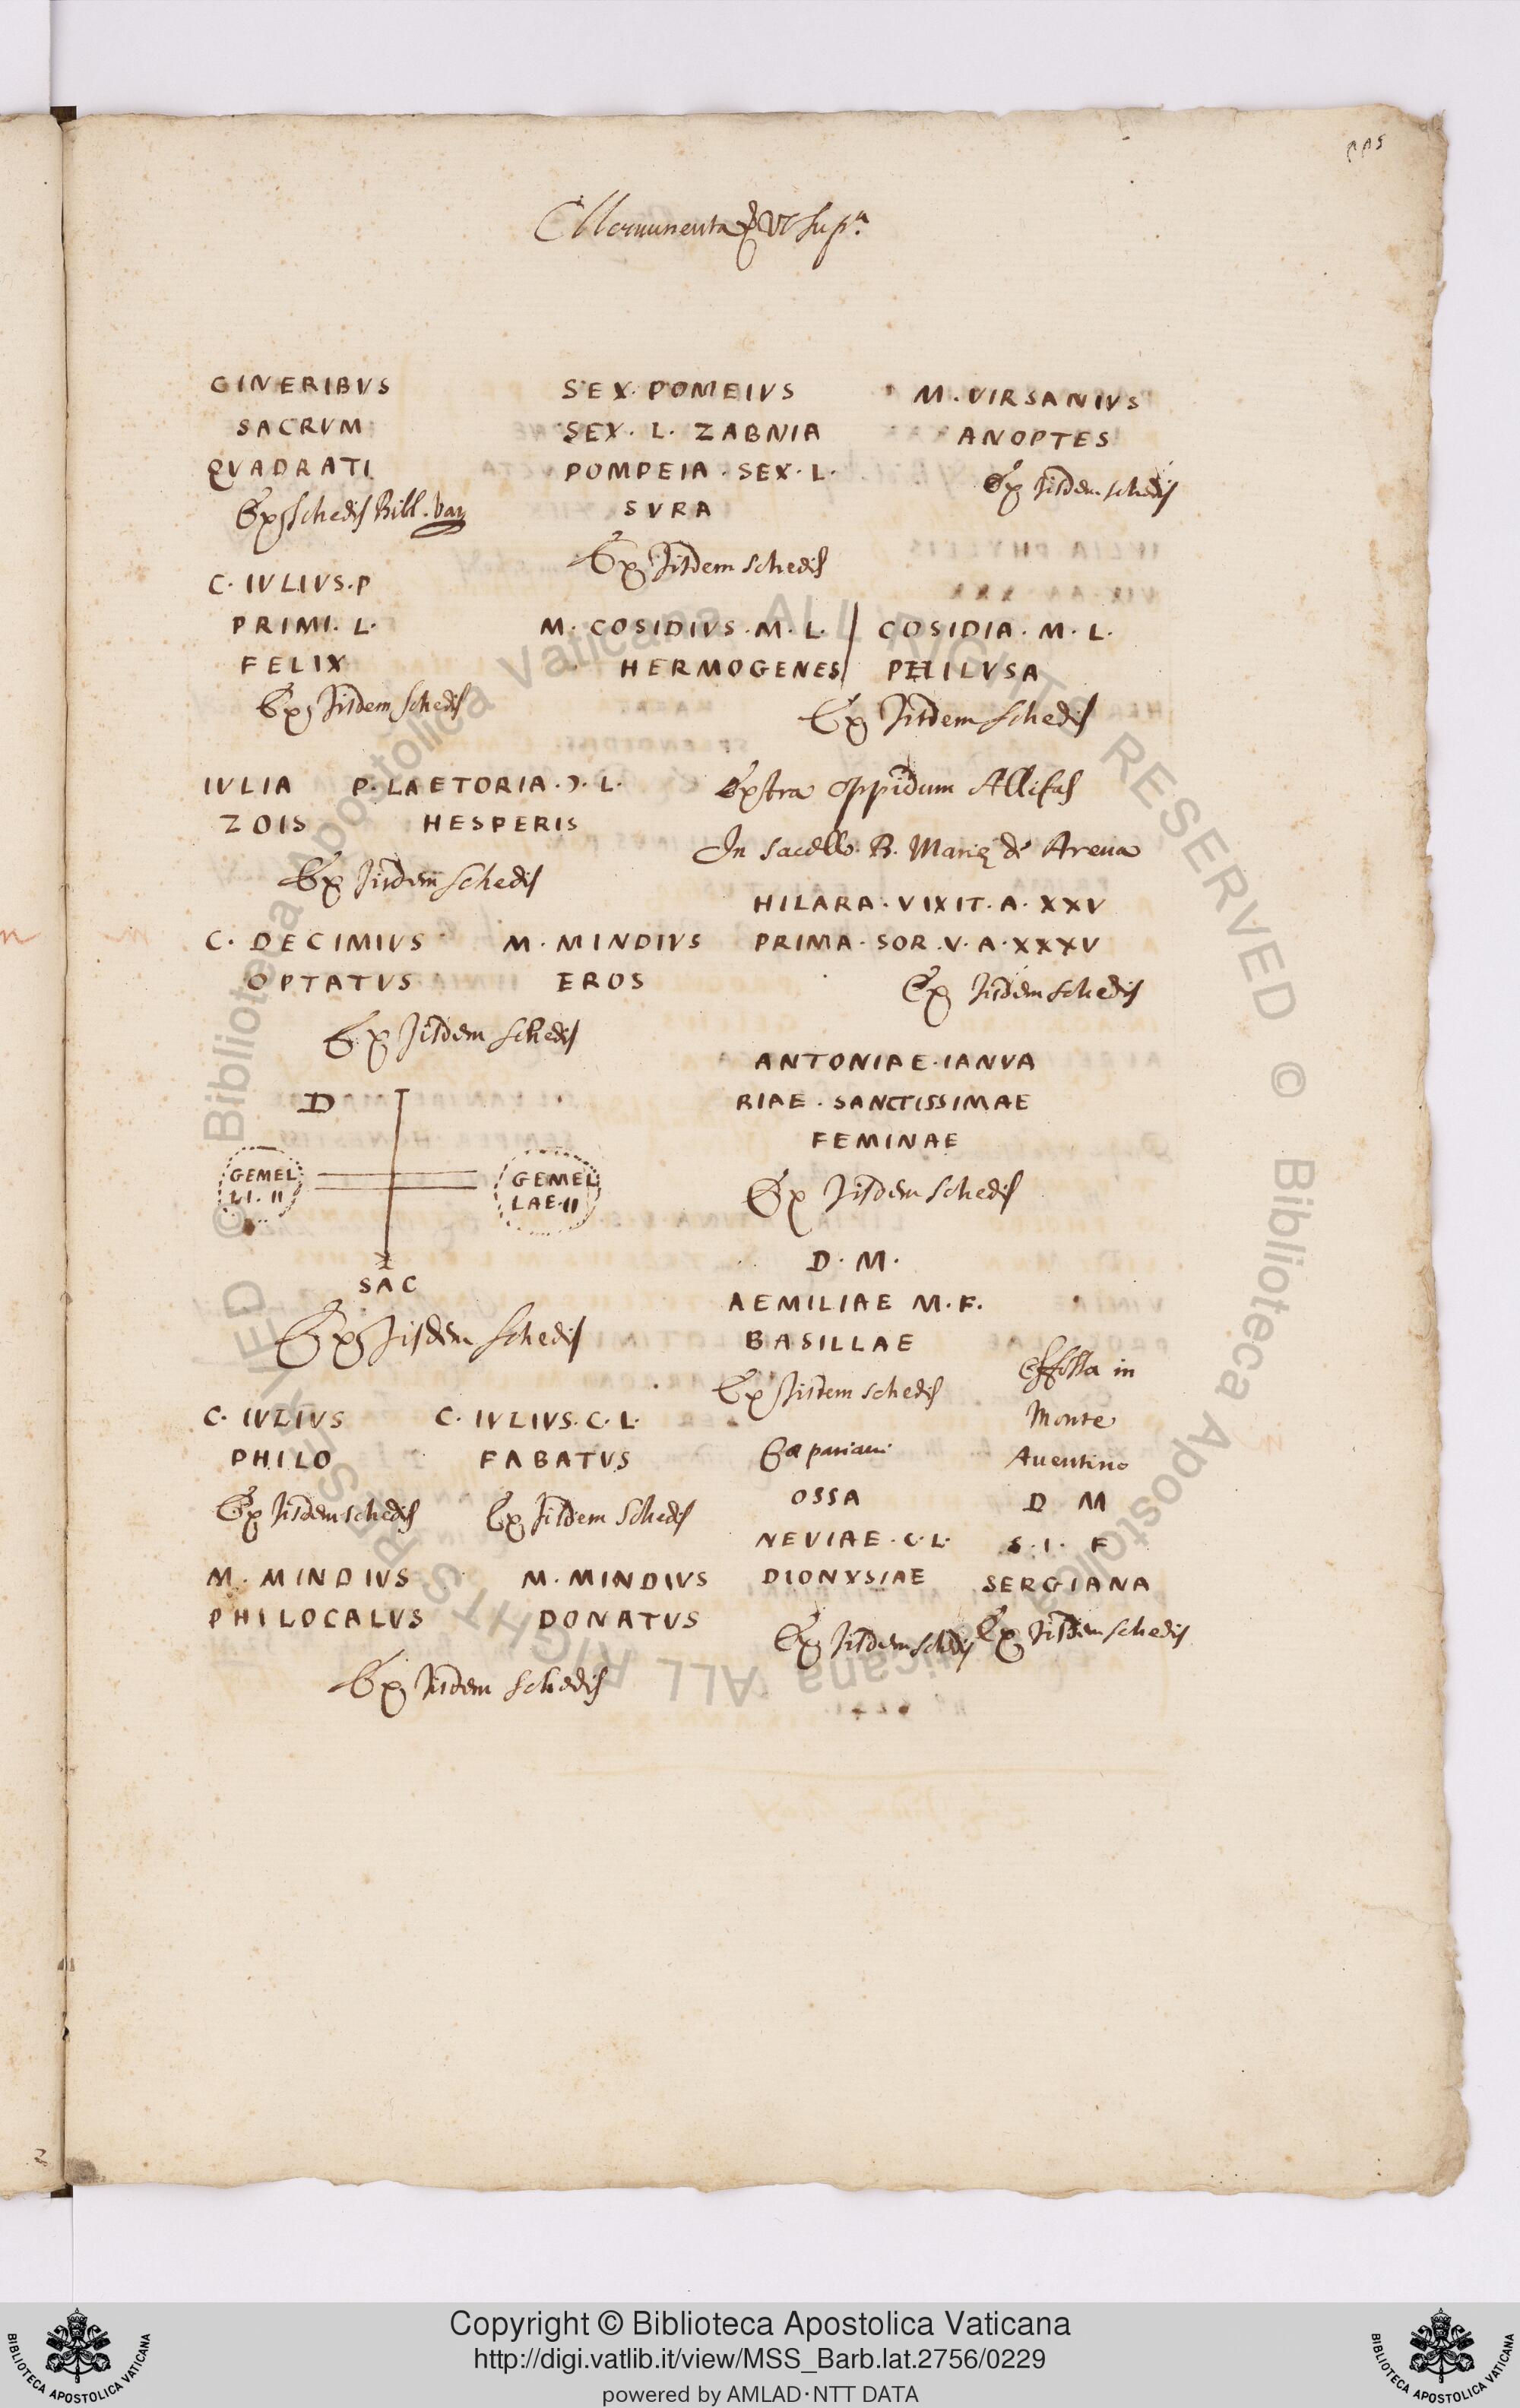 Monumenta & Vt sup.ª
GINERIBVS
SACRVM
QVADRATI
Ex schedis Bibl. Vaŋ
SEX. POMEIVS
SEX. L. ZABNIA
POMPEIA. SEX. L.
SVRA
Ex Jisdem schedis
M. VIRSANIVS
ANOPTES
Ex Jisdem schedis
C. IVLIVS. P
PRIMI. L.
FELIX
Ex Jisdem schedis
M. COSIDIVS. M. L. / COSIDIA. M. L.
HERMOGENES / PHILVSA
Ex Jisdem schedis
IVLIA P. LAETORIA. Ɔ. L.
ZOIS HESPERIS
Ex Jisdem schedis
Extra oppidum Allifas
In sacello B. Marię de Arena
HILARA. VIXIT. A. XXV
PRIMA. SOR. V. A. XXXV
Ex Jisdem schedis
C. DECIMIVS M. MINDIVS
OPTATVS EROS
Ex Jisdem schedis
ANTONIAE. IANVA
RIAE. SANCTISSIMAE
FEMINAE
Ex Jisdem schedis
D I
GEMEL
LI. II
GEMEL
LAE. II
SAC
Ex Jisdem schedis
D. M.
AEMILIAE M. F.
BASILLAE
Ex Jisdem schedis
C. IVLIVS
PHILO
Ex Jisdem schedis
C. IVLIVS. C. L.
FABATVS
Ex Jisdem schedis
OSSA
NEVIAE. C. L.
DIONYSIAE
Ex Jisdem schedis
Effossa in
Monte
Auentino
D M
S. I. F
SERGIANA
Ex Jisdem schedis
M. MINDIVS M. MINDIVS
PHILOCALVS DONATVS
Ex Jisdem schedis
© Biblioteca Apostolica Vaticana ALL RIGHTS RESERVED © Biblioteca Apostolica Vaticana ALL RIGHTS RESERVED
Copyright © Biblioteca Apostolica Vaticana
http://digi.vatlib.it/view/MSS_Barb.lat.2756/0229
powered by AMLAD·NTT DATA
BIBLIOTECA APOSTOLICA VATICANA
BIBLIOTECA APOSTOLICA VATICANA